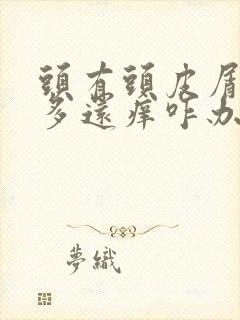 頭有頭皮屑
多還痒咋办
夢織